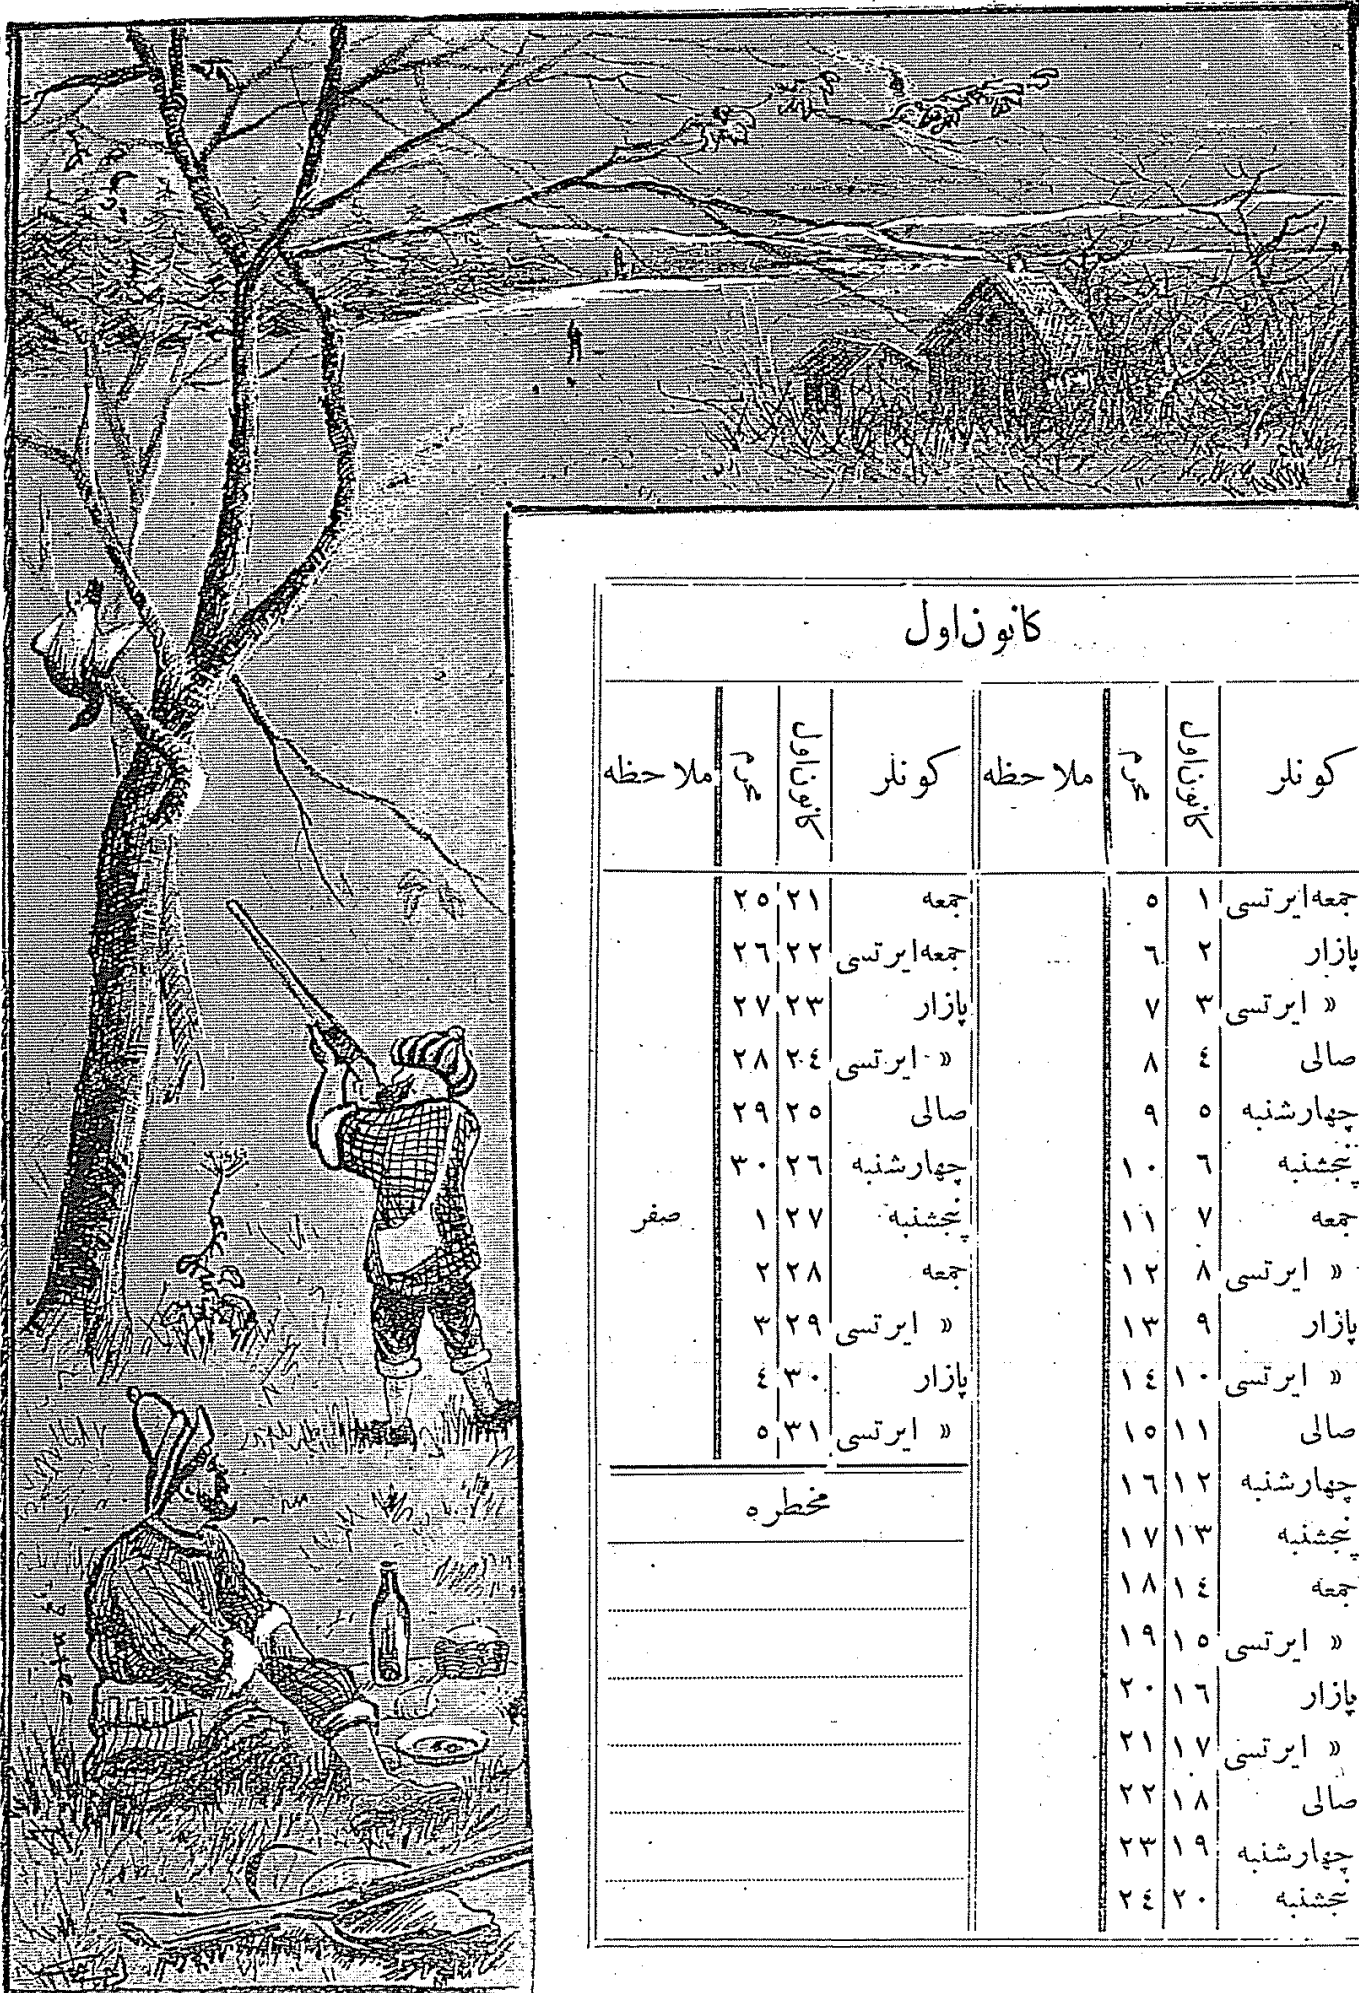 كانون اول
كونلر كانون اول محرم ملاحظه
جمعه ايرتسى ١ ٥
پازار ٢ ٦
« ايرتسى ٣ ٧
صالى ٤ ٨
چهارشنبه ٥ ٩
پنجشنبه ٦ ١٠
جمعه ٧ ١١
« ايرتسى ٨ ١٢
پازار ٩ ١٣
« ايرتسى ١٠ ١٤
صالى ١١ ١٥
چهارشنبه ١٢ ١٦
پنجشنبه ١٣ ١٧
جمعه ١٤ ١٨
« ايرتسى ١٥ ١٩
پازار ١٦ ٢٠
« ايرتسى ١٧ ٢١
صالى ١٨ ٢٢
چهارشنبه ١٩ ٢٣
پنجشنبه ٢٠ ٢٤
كونلر كانون اول محرم ملاحظه
جمعه ٢١ ٢٥
جمعه ايرتسى ٢٢ ٢٦
پازار ٢٣ ٢٧
« ايرتسى ٢٤ ٢٨
صالى ٢٥ ٢٩
چهارشنبه ٢٦ ٣٠
پنجشنبه ٢٧ ١ صفر
جمعه ٢٨ ٢
« ايرتسى ٢٩ ٣
پازار ٣٠ ٤
« ايرتسى ٣١ ٥
مخطره